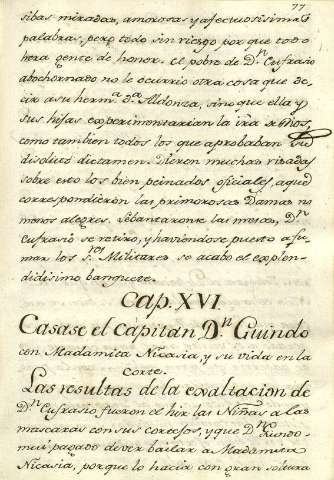 77
sibas miradas, amorosas y afectuosisimas
palabras, pero todo sin riesgo por que todo
hera gente de honor. el pobre de Dn. Eufrasio
abochornado no le ocurrio otra cosa que de
cir a su herma. da. Aldonza, sino que ella y
sus hijas experimentarian la ira
como tambien todos los que aprobaban su
disoluto dictamen. Dieron muchas risadas
sobre esto los bien peinados oficiales, a que
correspondieron las primorosas Damas no
menos alegres. Lebantaronse las mesas, Dn.
Eufrasio se retiro, y haviendose puesto a fu
mar los Sres. Militares se acabo el esplen
didisimo banquete.
Cap. XVI.
Casase el Capitan Dn. Guindo
con Madamita Nicasia, y su vida en la
corte.
Las resultas de la exaltacion de
Dn. Eufrasio fueron el hir las Niñas a las
mascaras con sus cortejos, y que Dn.
mui pagado de ver bailar a Madamita
Nicasia, porque lo hacia con gran soltura